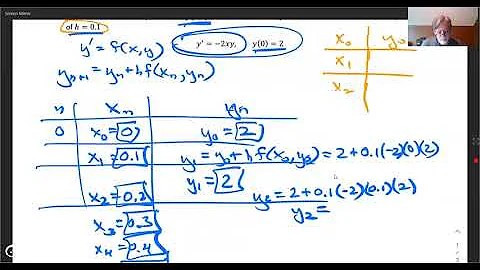 of h = 0.1
y' = f(x,y)
y' = −2xy, y(0) = 2
y_{n+1} = y_n + h f(x_n, y_n)
x_0 y_0
x_1
x_2
n x_n y_n
0 x_0 = 0 y_0 = 2
x_1 = 0.1 y_1 = y_0 + h f(x_0, y_0) = 2 + 0.1(-2)(0)(2)
y_1 = 2
x_2 = 0.2 y_2 = 2 + 0.1(-2)(0.1)(2)
y_2 =
x_3 = 0.3
x_4 = 0.4